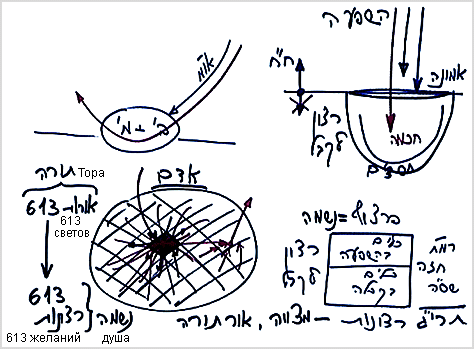 השפעה
או"מ
ח"ח
אמונה
רצון
לקבל
חכמה
חסדים
תורה Тора
אורות 613
613
светов
אדם
פרצוף=נשמה
רצון
לקבל
כלים
בהשפעה
כלים
בקבלה
רמ"ח
חזה
שס"ה
613
רצונות
נשמה
תרי"ג רצונות – מצווה, אור תורה
613 желаний
душа